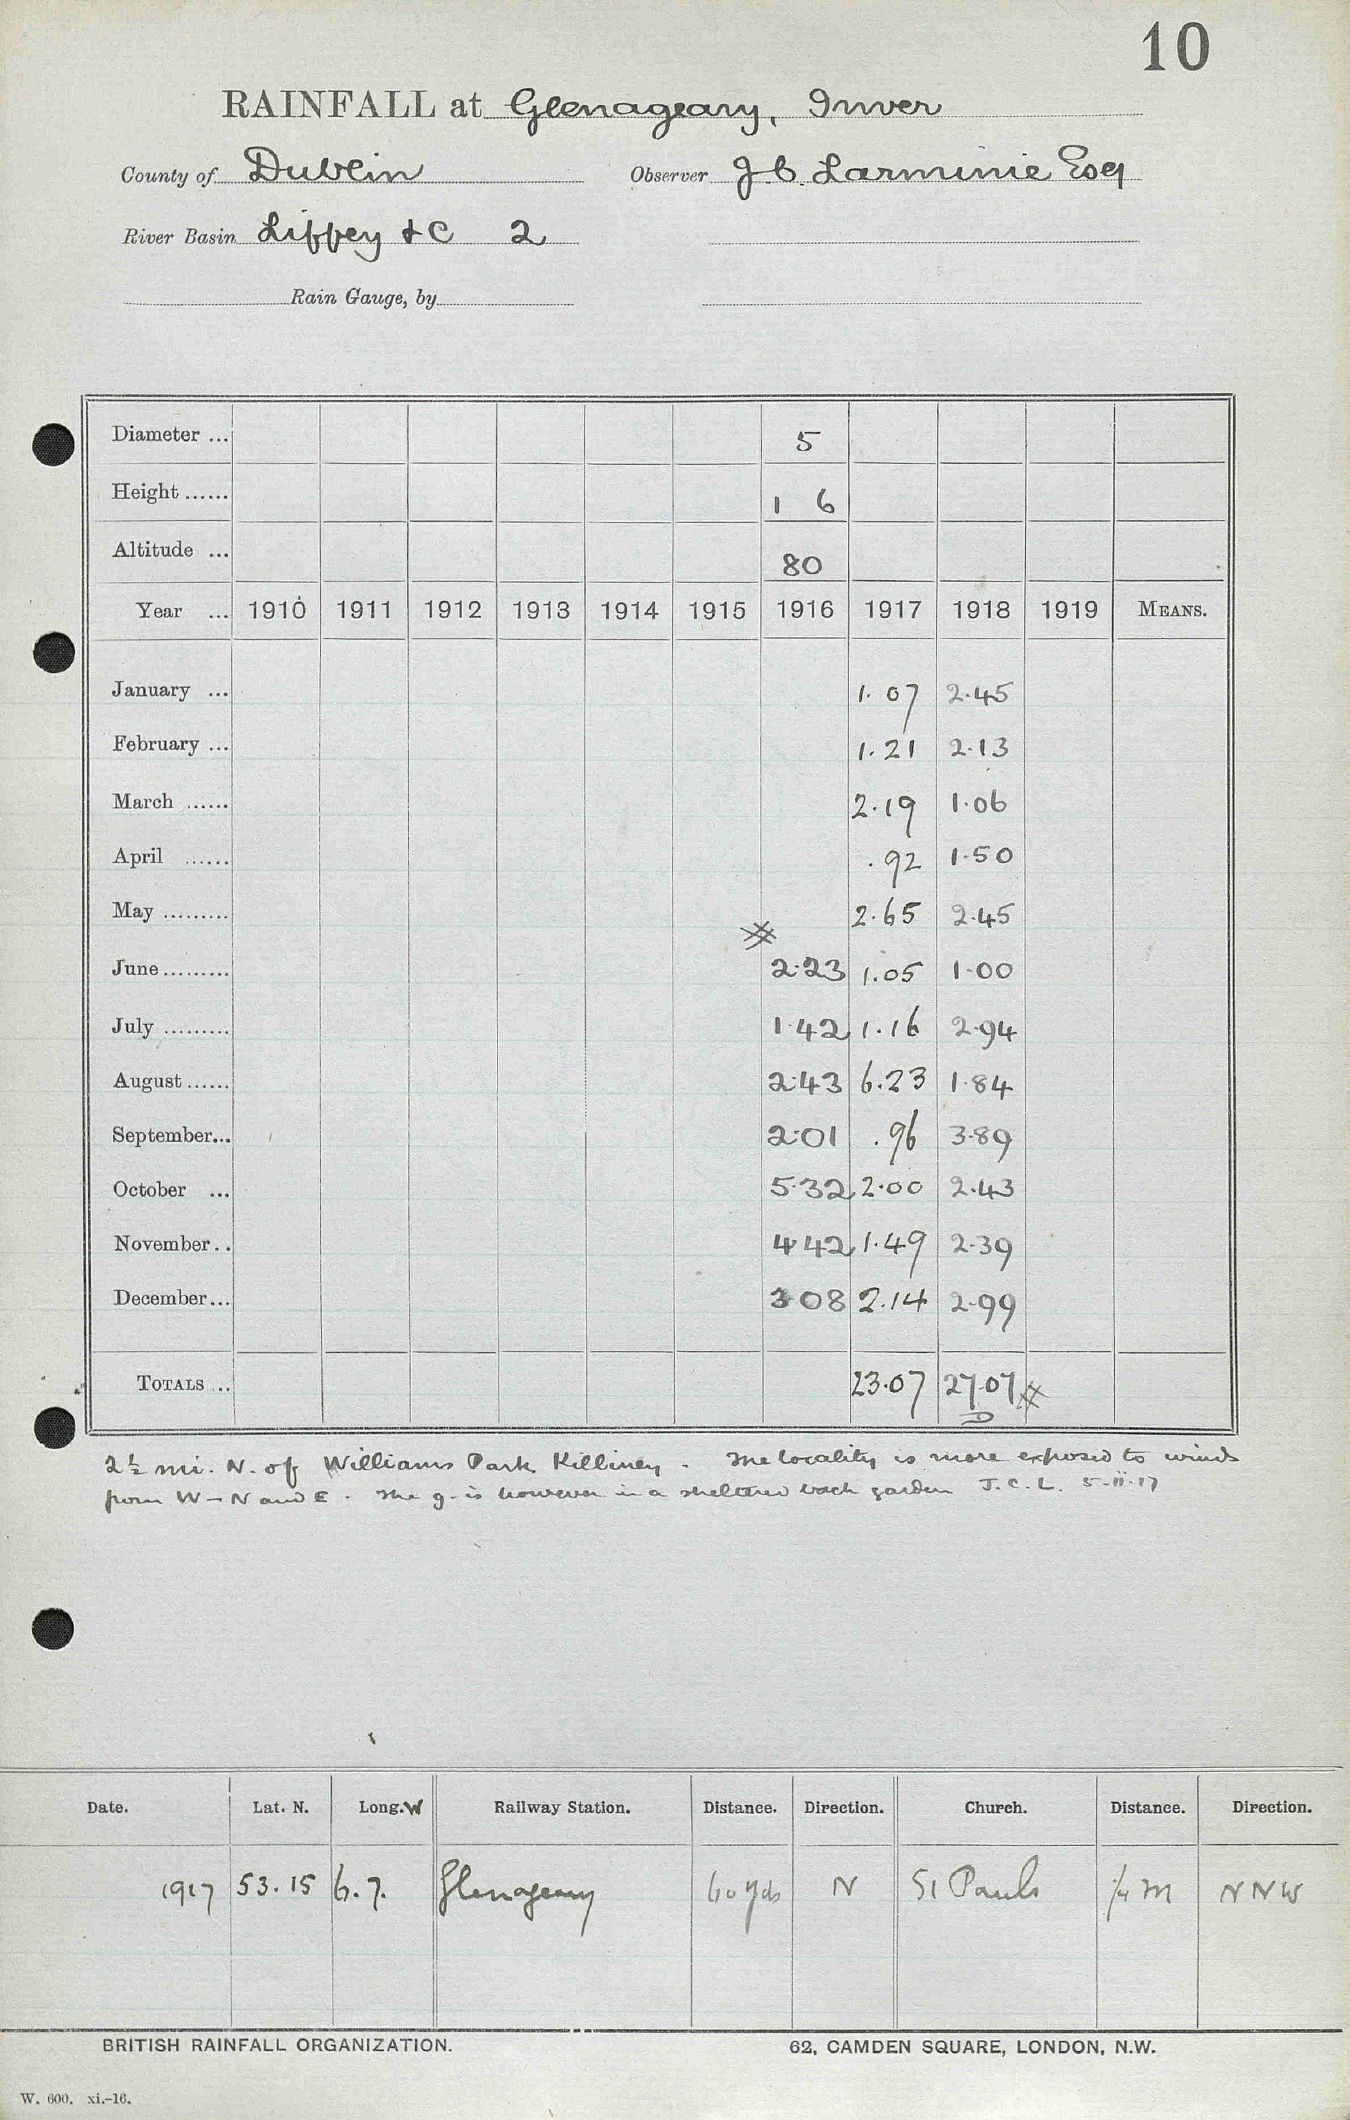 10
RAINFALL at Glenageary, Inver
County of Dublin Observer J.C. Larminie Esq
River Basin Liffey &c 2
Rain Gauge, by
Diameter ... 5
Height ...... 1 6
Altitude ... 80
Year ... 1910 1911 1912 1913 1914 1915 1916 1917 1918 1919 MEANS.
January ... 1.07 2.45
February ... 1.21 2.13
March ...... 2.19 1.06
April ...... .92 1.50
May ......... 2.65 2.45
June ......... 2.23 1.05 1.00
July ......... 1.42 1.16 2.94
August ...... 2.43 6.23 1.84
September... 2.01 .96 3.89
October ... 5.32 2.00 2.43
November.. 4.42 1.49 2.39
December... 3.08 2.14 2.99
TOTALS ... 23.07 27.07
D
2½ mi. N. of Williams Park Killiney. The locality is more exposed to winds
from W - N and E. The g. is however in a sheltered back garden J.C.L. 5-11-17
Date. Lat. N. Long. W Railway Station. Distance. Direction. Church. Distance. Direction.
1917 53.15 6.7. Glenageary 60 yds N St Pauls ¼ m NNW
BRITISH RAINFALL ORGANIZATION. 62, CAMDEN SQUARE, LONDON, N.W.
W. 600. xi.-16.